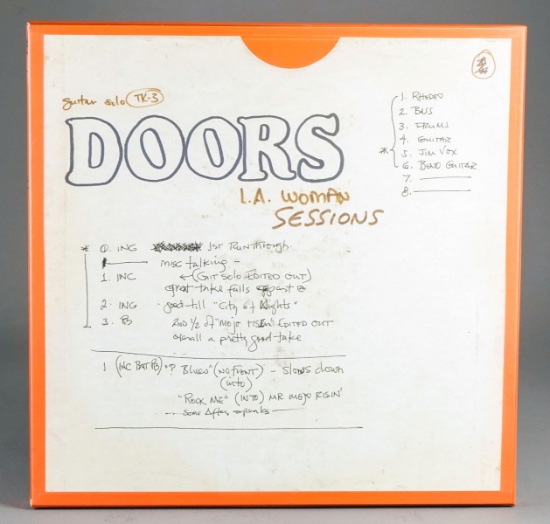 guitar solo TK-3
DOORS
L.A. WOMAN
SESSIONS
1. RHODES
2. BASS
3. DRUMS
4. GUITAR
* 5. JIM VOX
6. BEND GUITAR
7.
8.
* 0. INC 1ST RUNTHROUGH
misc talking -
1. INC ←(GIT SOLO EDITED OUT)
great take falls apart @
2. INC good till "City of Nights"
3. PB 2ND 1/2 of "MOJO RISIN" EDITED OUT
overall a pretty good take
1 (INC BUT PB) "P. Blues" (NO FRONT) - SLOWS down
(into)
"ROCK ME" (INTO) MR MOJO RISIN'